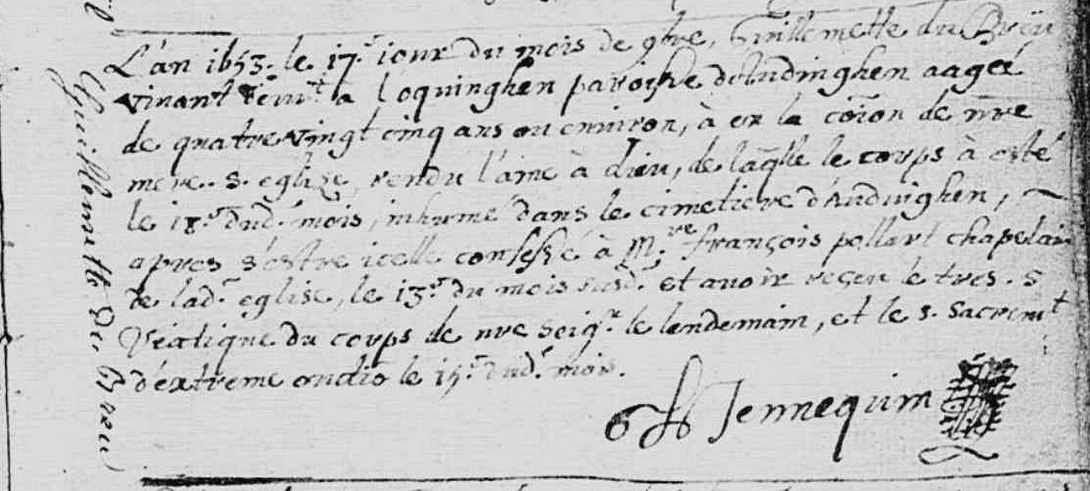 Guillemette du Breu
L'an 1653. le 17.e iour du mois de 9bre, Guillemette du Breu
vivant à Loquinghen paroisse d'Audinghen aagée
de quatre vingt cinq ans ou environ, à en la coïon de nre
mere. S. eglize, rendu l'ame à dieu, de laqlle le corps à esté
le 18.e dud.t mois, inhumé dans le cimetiere d'Audinghen,
apres s'estre icelle confessé à M.re françois pollart chapelain
de lad.e eglise, le 13.e du mois susd. et avoir reçeu le tres. S
Viatique du corps de nre Seigr. le lendemain, et le s. Sacremt
d'extreme onctiō le 15.e dud.t mois.
Jennequin